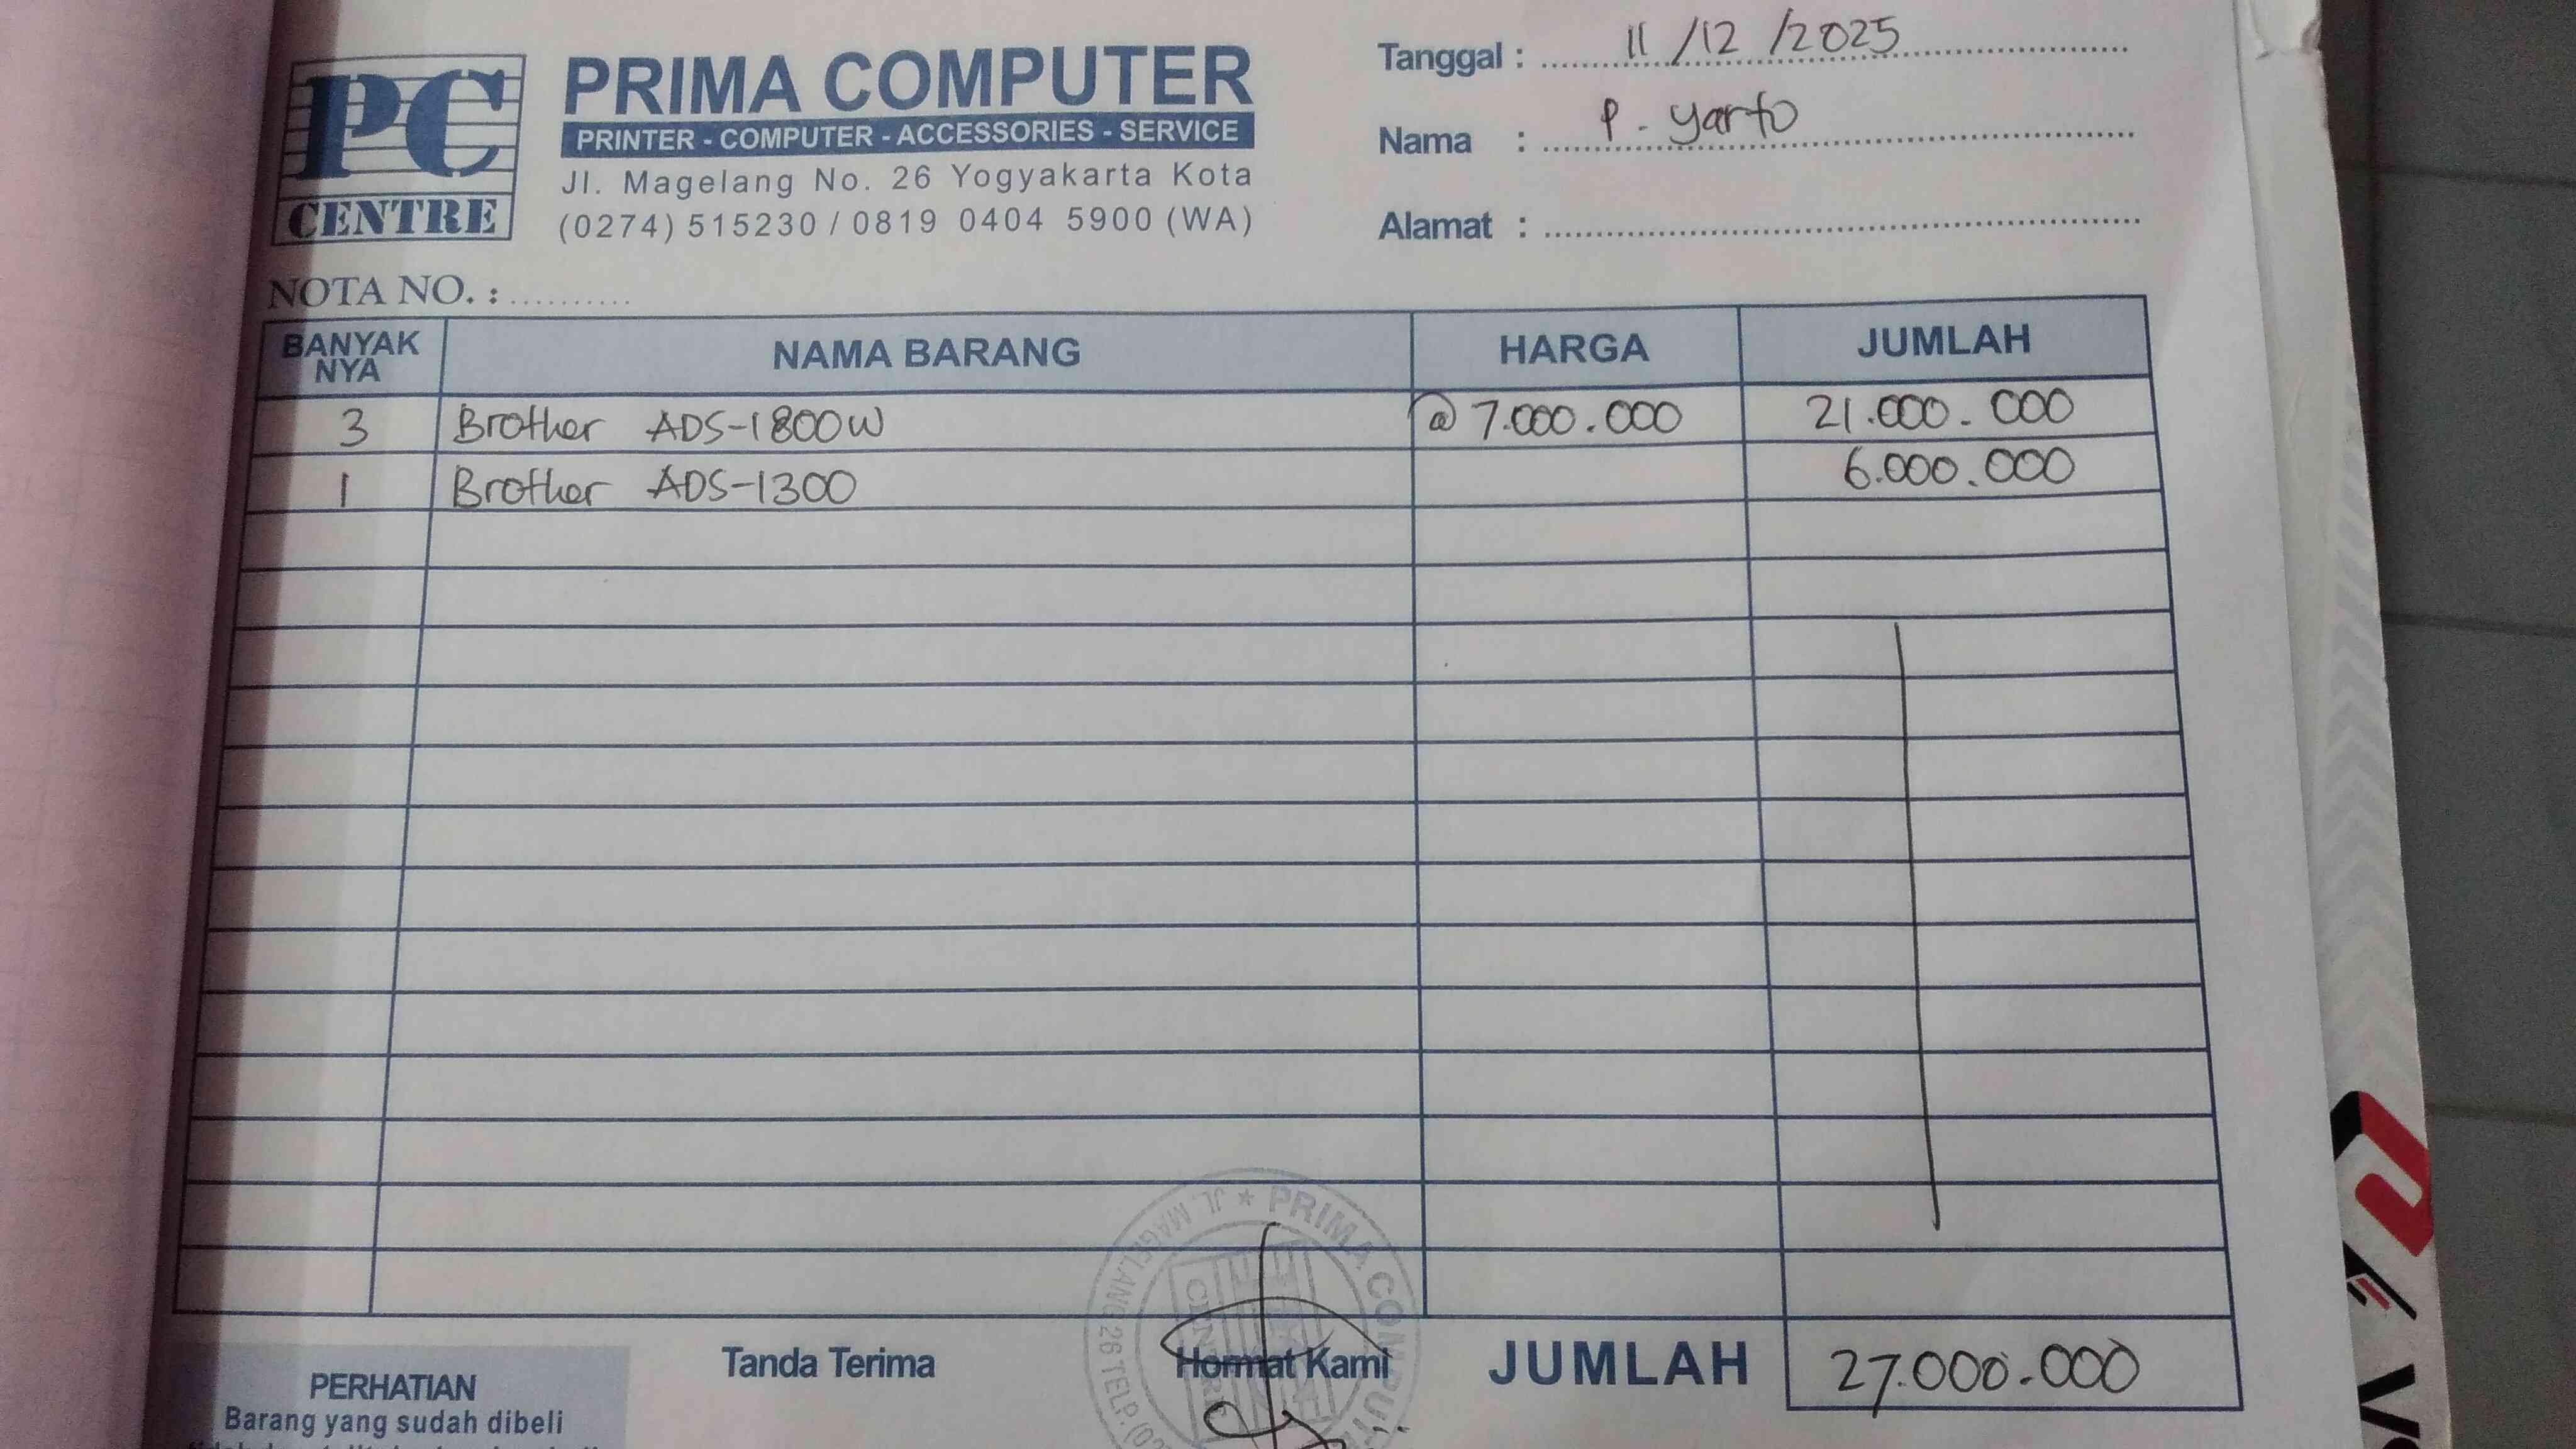 PC
CENTRE
PRIMA COMPUTER
PRINTER - COMPUTER - ACCESSORIES - SERVICE
Jl. Magelang No. 26 Yogyakarta Kota
(0274) 515230 / 0819 0404 5900 (WA)
Tanggal : 11/12/2025
Nama : P. Yarto
Alamat :
NOTA NO. :
BANYAK NYA NAMA BARANG HARGA JUMLAH
3 Brother ADS-1800W @ 7.000.000 21.000.000
1 Brother ADS-1300 6.000.000
JL. MAGELANG 26 TELP. * PRIMA COMPUTE
CENTRE
Tanda Terima Hormat Kami JUMLAH 27.000.000
PERHATIAN
Barang yang sudah dibeli